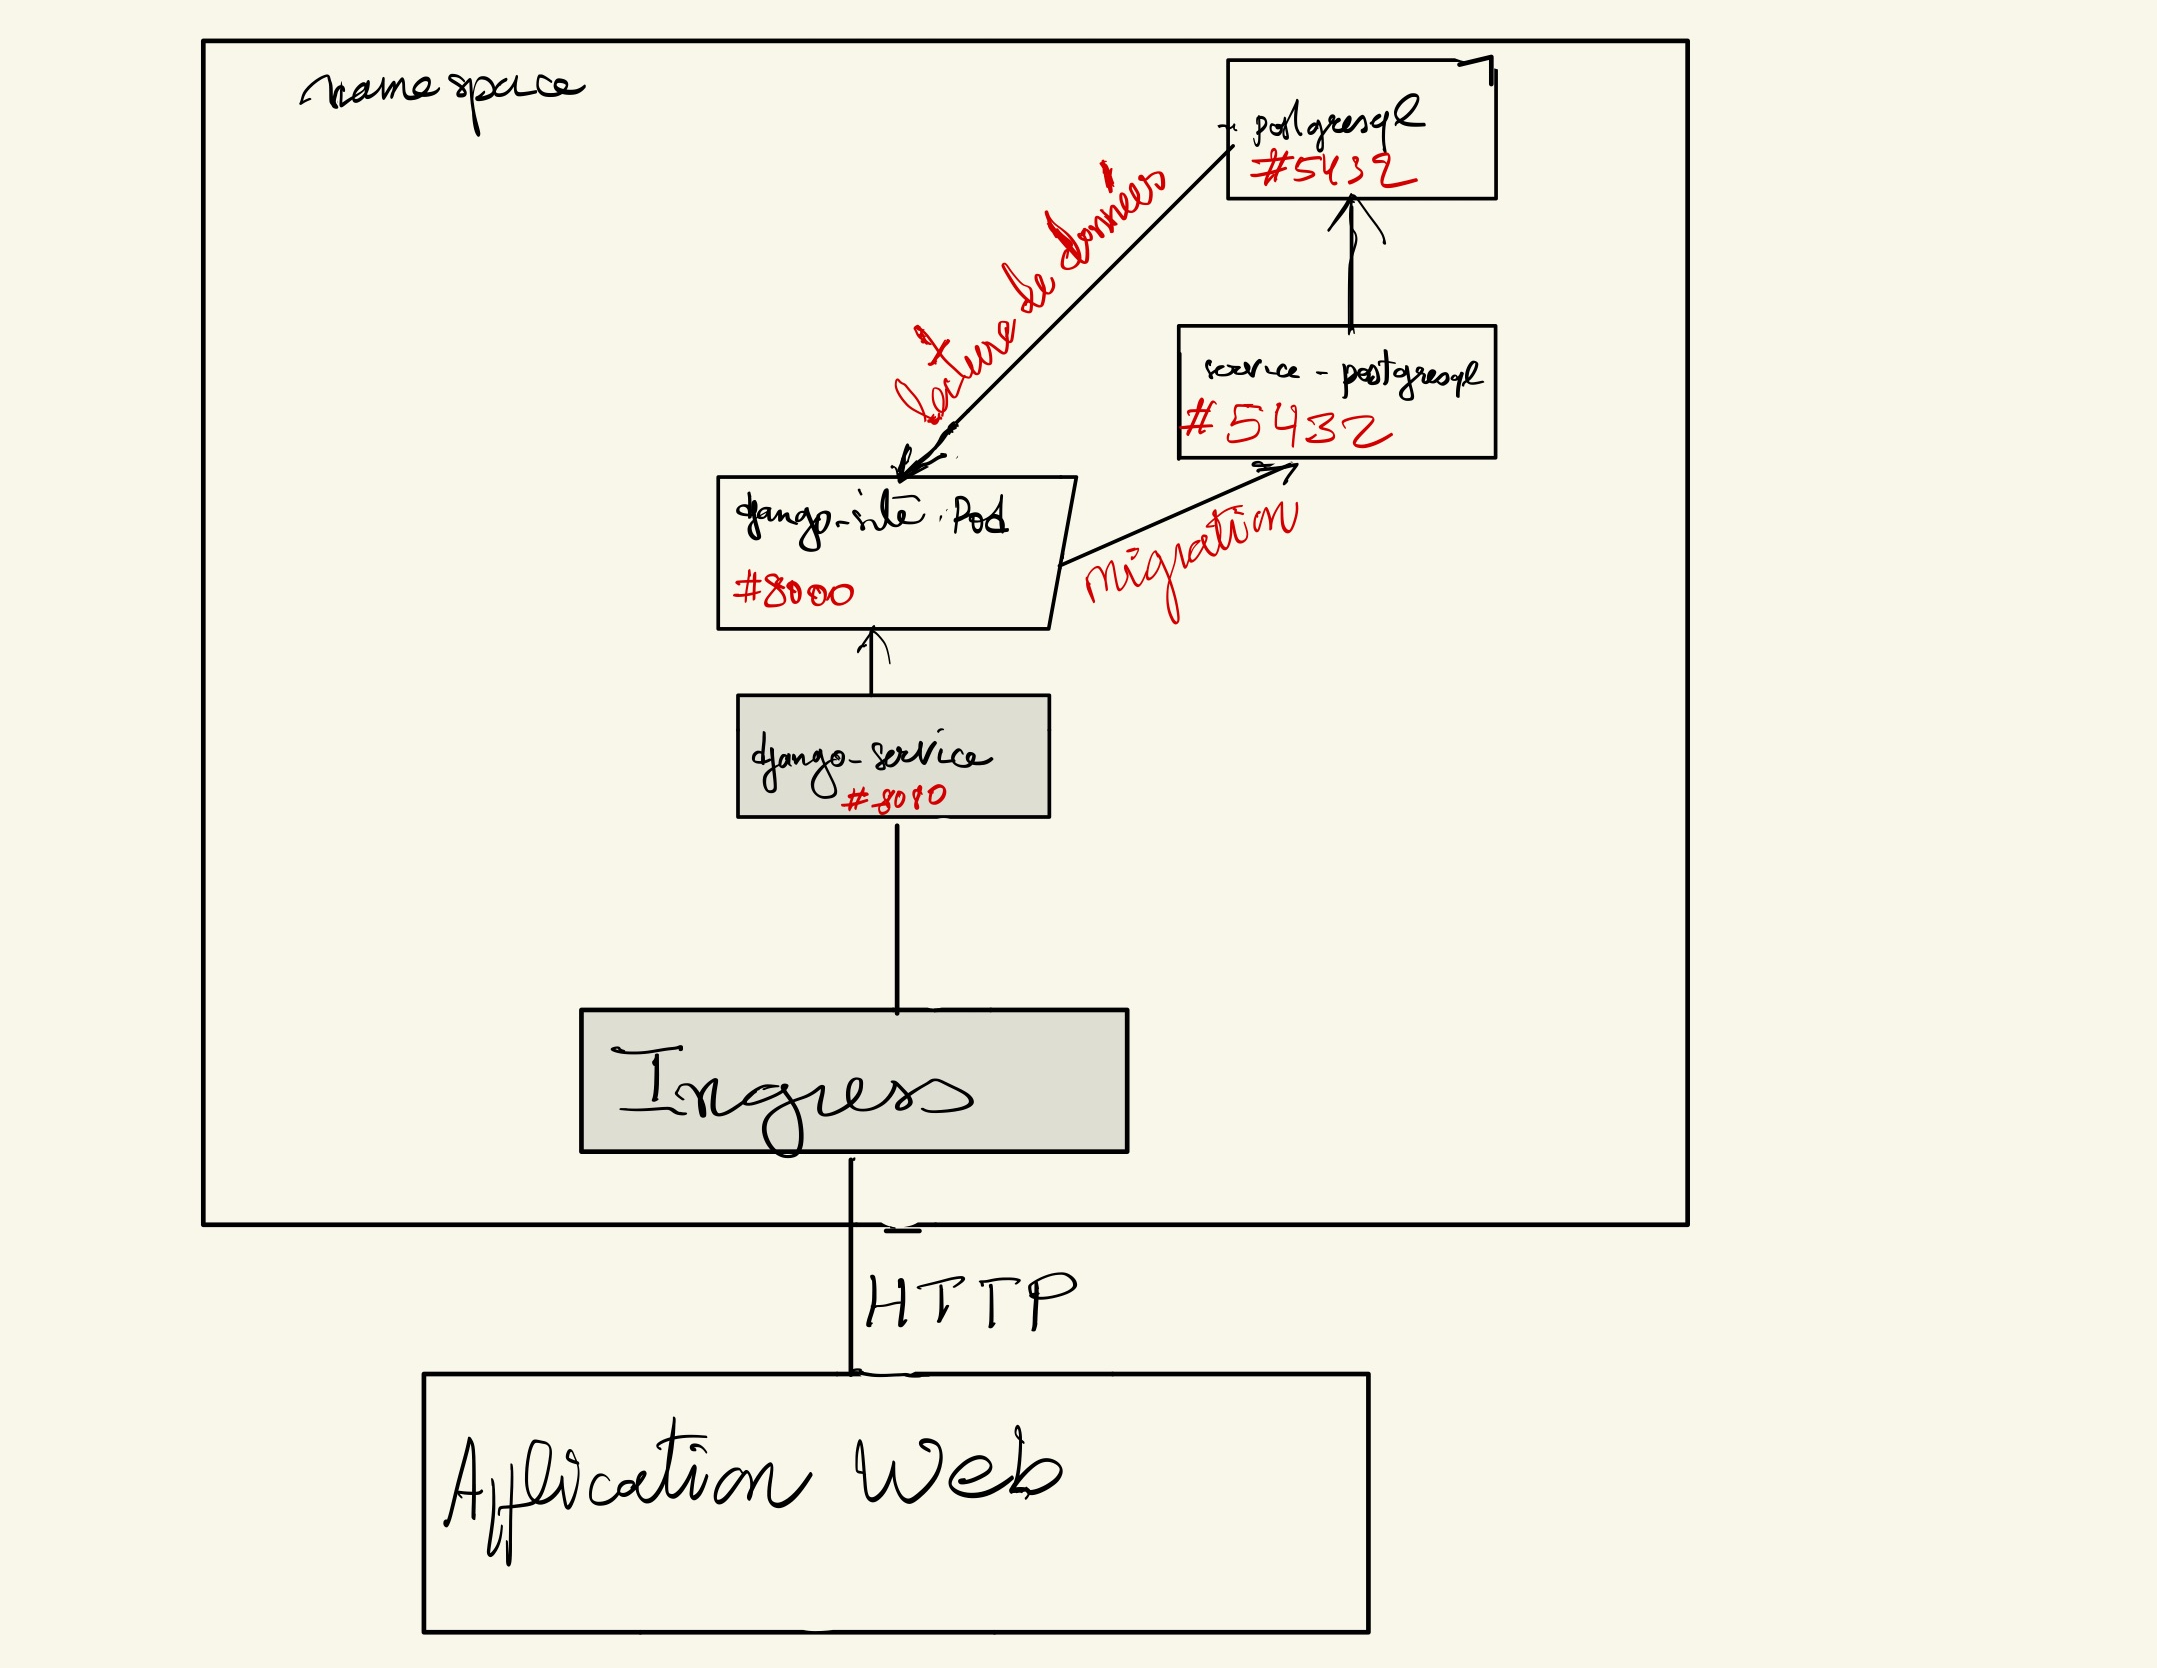 namespace
postgresql
#5432
lecture de données
service-postgresql
#5432
django-site-Pod
#8000
migration
django-service
#8080
Ingress
HTTP
Application Web